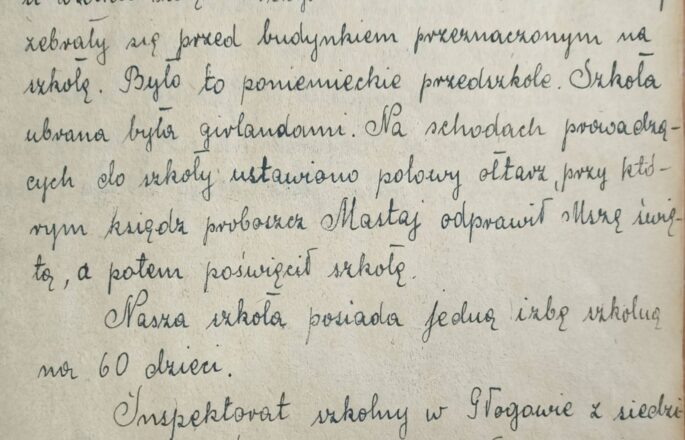 zebrały się przed budynkiem przeznaczonym na
szkołę. Było to poniemieckie przedszkole. Szkoła
ubrana była girlandami. Na schodach prowadzą-
cych do szkoły ustawiono polowy ołtarz, przy któ-
rym ksiądz proboszcz Mastaj odprawił Mszę świę-
tą, a potem poświęcił szkołę.
Nasza szkoła posiada jedną izbę szkolną
na 60 dzieci.
Inspektorat szkolny w Głogowie z siedzi